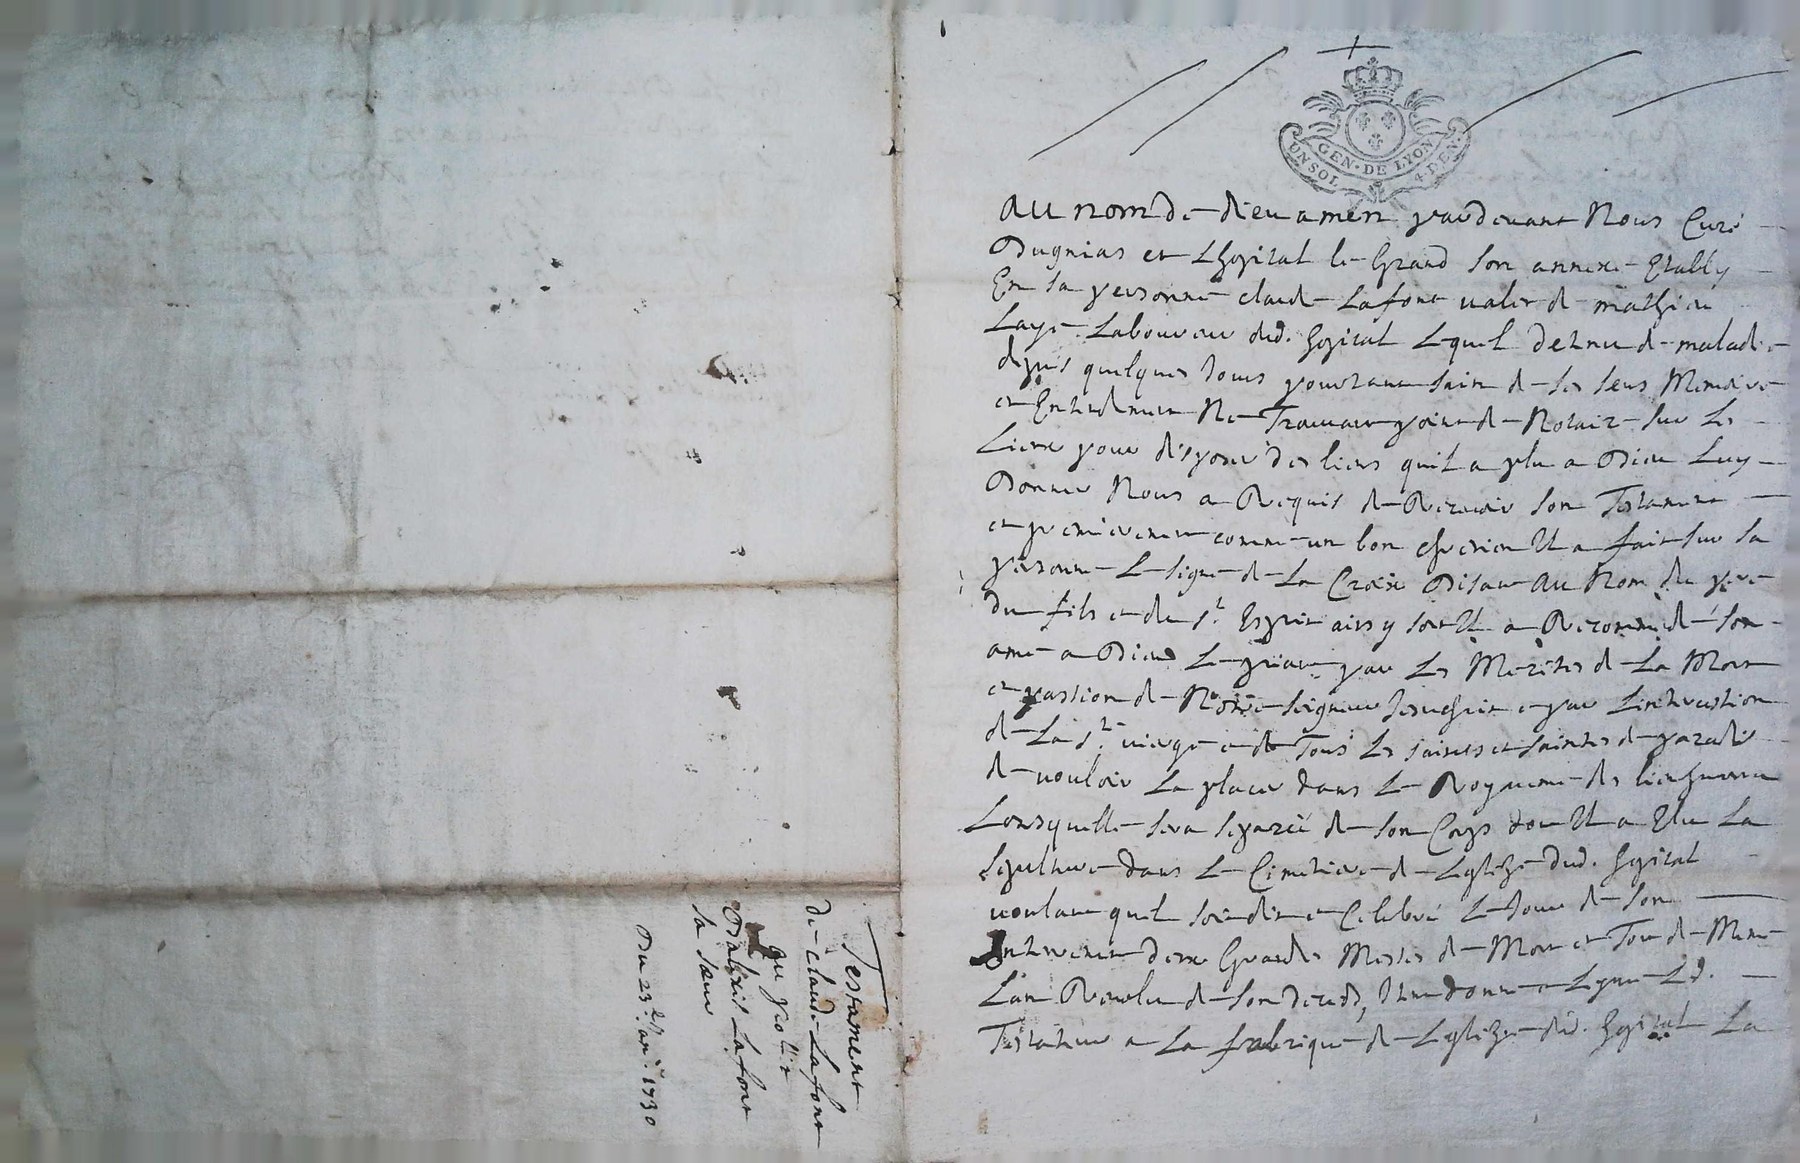 GEN · DE LYON
UN SOL 4 DEN.
Au nom de dieu amen pardevant Nous Curé
Dugnias et Lhopital le Grand son annexe Etably
En sa personne claude Lafont valet de mathieu
Laye Laboureur dud. hopital Lequel detenu de maladie
depuis quelques Jours pourtant sain de ses sens Memoire
et Entendement Ne Trouvant point de Notaire sur les
Lieux pour disposer des biens quil a plu a Dieu Luy
Donner Nous a Requis de Recevoir son Testament
et premierement comme un bon chretien Il a fait sur sa
personne Le signe de La Croix Disant Au Nom du pere
du fils et du st. Esprit ainsy soit Il a Recommandé son
ame a Dieu Le priant par Les Merites de La Mort
et passion de Notre seigneur Jesuchrit et par Lintercession
de La ste. vierge et de Tous Les saincts et sainctes de paradis
de vouloir La placer dans Le Royaume des bienheureux
Lorsquelle sera separée de son Corps dont Il a Elu La
sepulture dans Le Cimetiere de Leglise dud. hopital
voulant quil soit dit et Celebré Le Jour de son
Enterrement deux Grandes Messes de Mort et Tout de Meme
Lan Revolu de son deced, Item donne et Legue Led.
Testateur a La fabrique de Leglise dud. hopital La
Testament
de claude Lafont
au profit
Lafont
sa sœur
Du 23e. janr. 1730